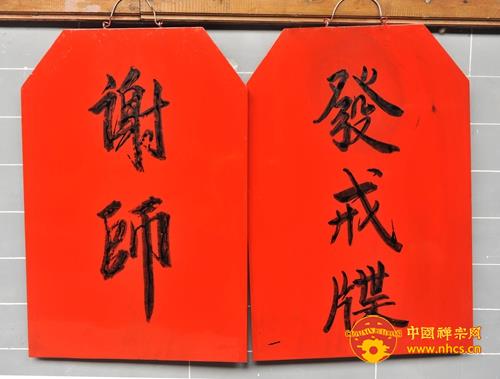 謝師
發戒牒
中國禅宗网
www.nhcs.cn